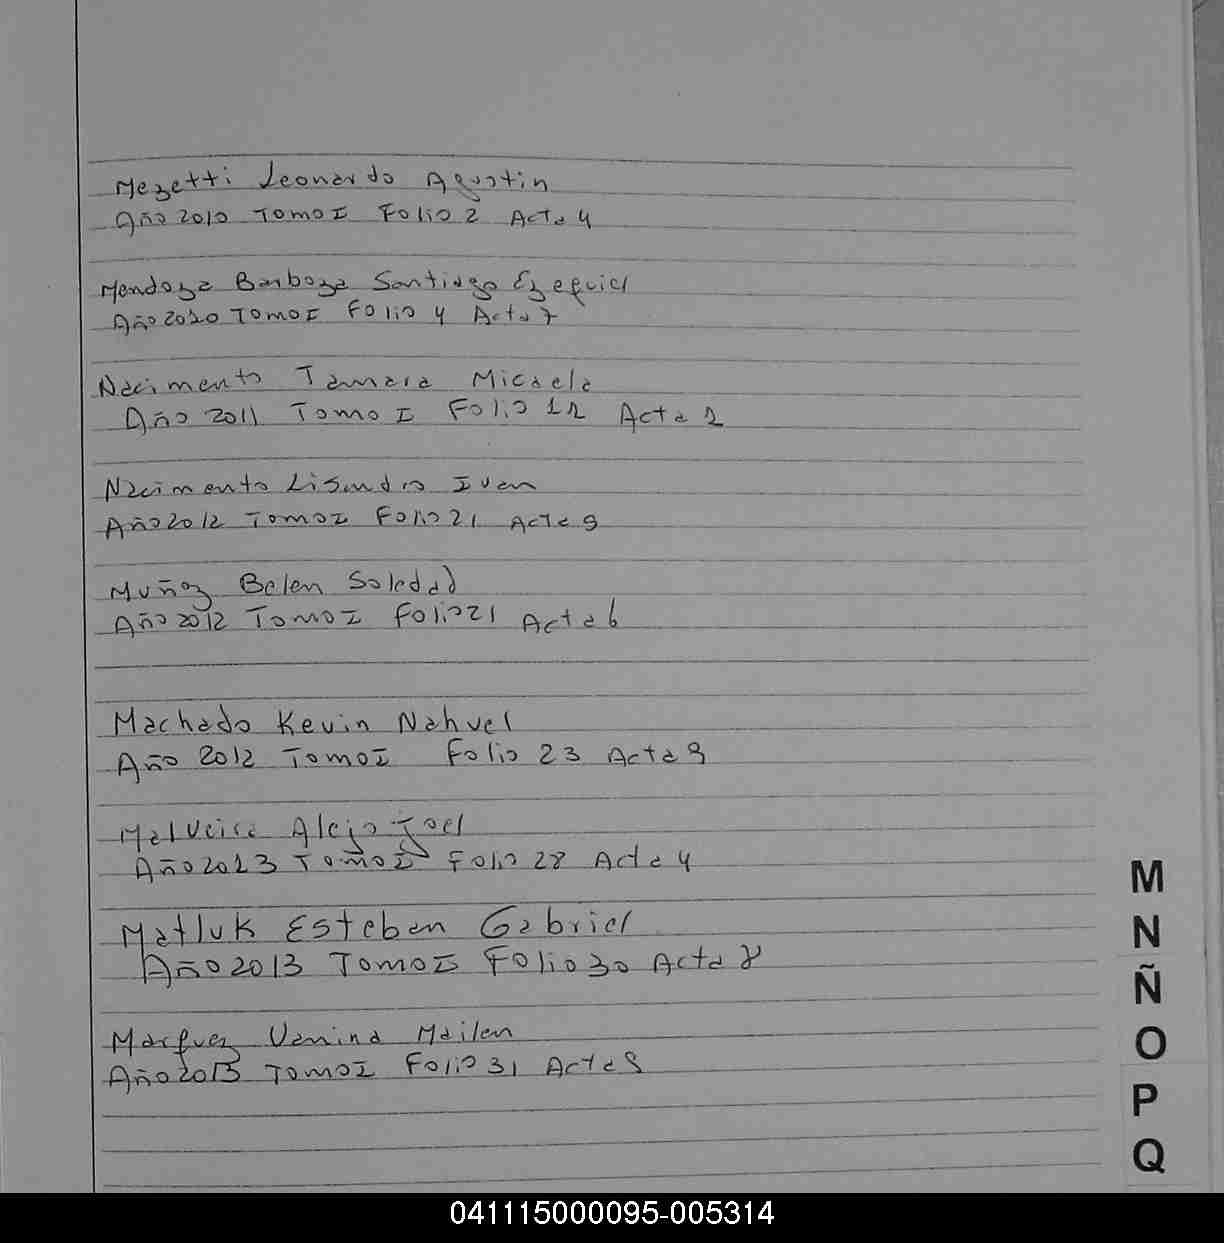 Mezetti Leonardo Agustin
Año 2010 Tomo I Folio 2 Acta 4
Mendoza Barboza Santiago Ezequiel
Año 2010 Tomo I Folio 4 Acta 7
Nacimento Tamara Micaela
Año 2011 Tomo I Folio 12 Acta 2
Nacimento Lisandro Ivan
Año 2012 Tomo I Folio 21 Acta 9
Muñoz Belen Soledad
Año 2012 Tomo I Folio 21 Acta 6
Machado Kevin Nahuel
Año 2012 Tomo I Folio 23 Acta 9
Malveira Alejo Joel
Año 2013 Tomo I Folio 28 Acta 4
Matluk Esteban Gabriel
Año 2013 Tomo I Folio 30 Acta 8
Marquez Vanina Mailen
Año 2013 Tomo I Folio 31 Acta
M
N
Ñ
O
P
Q
041115000095-005314